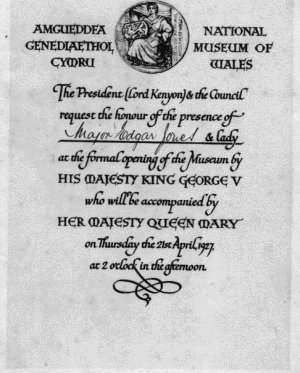 AMGUEDDFA
GENEDLAETHOL
CYMRU
NATIONAL
MUSEUM OF
WALES
The President (Lord Kenyon) & the Council
request the honour of the presence of
Major Edgar Jones & lady
at the formal opening of the Museum by
HIS MAJESTY KING GEORGE V
who will be accompanied by
HER MAJESTY QUEEN MARY
on Thursday the 21st April, 1927,
at 2 o'clock in the afternoon.